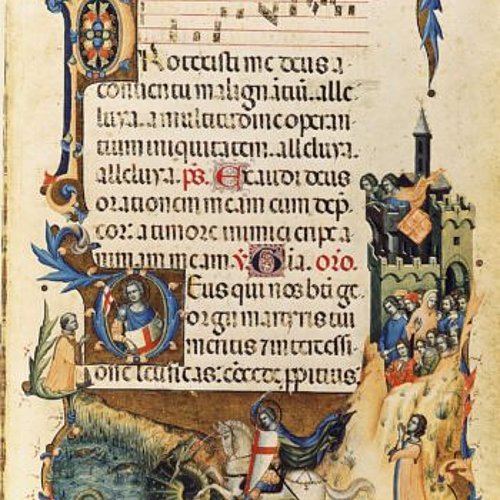 Protexisti me deus a
conuentu malignātiū. alle
luya. a multitudine operan
tium iniquitatem. alleluya.
alleluya. ps. Exaudi deus
orationem meam cum dep̄
cor: a timore inimici eripe a
nimam meam. ℣ Glia. oro.
Deus qui nos bt̄i ge
orgii martyris tui
meritis ⁊ intercessi
one letificas: cōcede ꝓpitius.